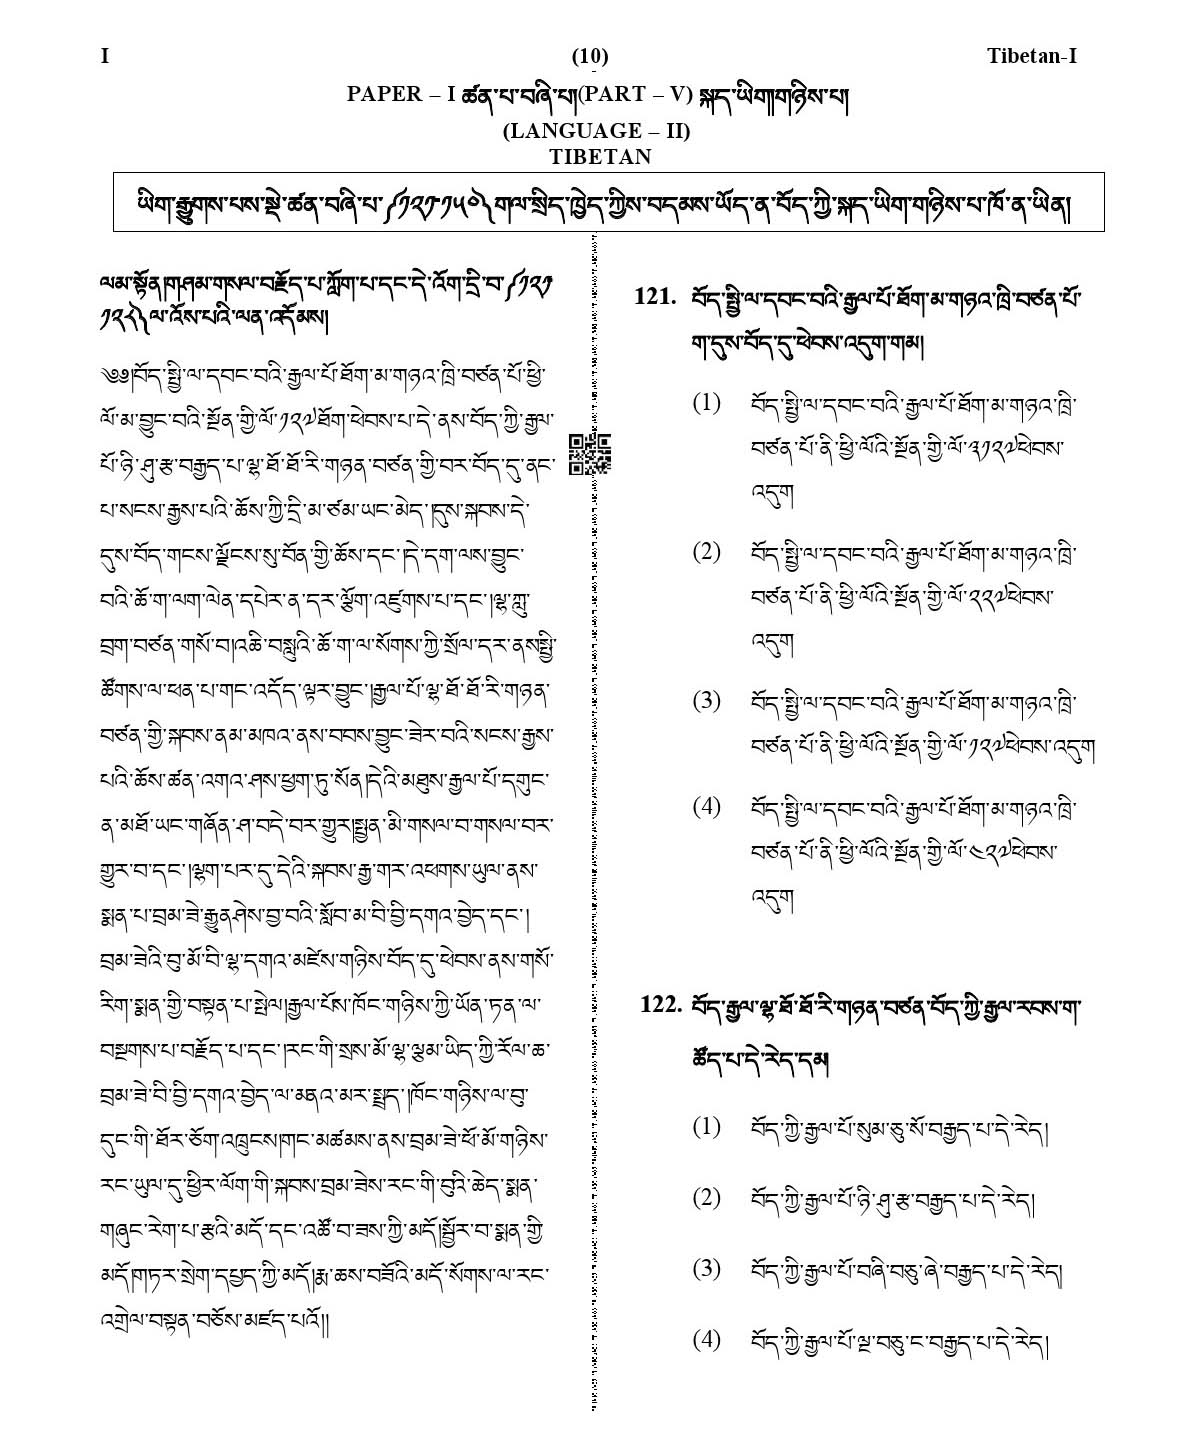 I (10) Tibetan-I
PAPER – I ཚན་པ་བཞི་པ།(PART – V) སྐད་ཡིག།གཉིས་པ།
(LANGUAGE – II)
TIBETAN
ཡིག་རྒྱུགས་པས་སྡེ་ཚན་བཞི་པ་༼༡༢༡-༡༥༠༽གལ་སྲིད་ཁྱེད་ཀྱིས་བདམས་ཡོད་ན་བོད་ཀྱི་སྐད་ཡིག་གཉིས་པ་ཁོ་ན་ཡིན།
ལམ་སྟོན།གཤམ་གསལ་བརྗོད་པ་ཀློག་པ་དང་དེ་འོག་དྲི་བ་༼༡༢༡
༡༢༨༽ལ་འོས་པའི་ལན་འདོམས།
༄༅།བོད་སྤྱི་ལ་དབང་བའི་རྒྱལ་པོ་ཐོག་མ་གཉའ་ཁྲི་བཙན་པོ་ཕྱི་
ལོ་མ་བྱུང་བའི་སྔོན་གྱི་ལོ་༡༢༧ཐོག་ཕེབས་པ་དེ་ནས་བོད་ཀྱི་རྒྱལ་
པོ་ཉི་ཤུ་རྩ་བརྒྱད་པ་ལྷ་ཐོ་ཐོ་རི་གཉན་བཙན་གྱི་བར་བོད་དུ་ནང་
པ་སངས་རྒྱས་པའི་ཆོས་ཀྱི་དྲི་མ་ཙམ་ཡང་མེད་།དུས་སྐབས་དེ་
དུས་བོད་གངས་ལྗོངས་སུ་བོན་གྱི་ཆོས་དང་།དེ་དག་ལས་བྱུང་
བའི་ཆོ་ག་ལག་ལེན་དཔེར་ན་དར་ལྕོག་འཛུགས་པ་དང་།ལྷ་ཀླུ་
བྲག་བཙན་གསོ་བ།འཆི་བསླུའི་ཆོ་ག་ལ་སོགས་ཀྱི་སྲོལ་དར་ནས་སྤྱི་
ཚོགས་ལ་ཕན་པ་གང་འདོད་ལྟར་བྱུང་།རྒྱལ་པོ་ལྷ་ཐོ་ཐོ་རི་གཉན་
བཙན་གྱི་སྐབས་ནམ་མཁའ་ནས་བབས་བྱུང་ཟེར་བའི་སངས་རྒྱས་
པའི་ཆོས་ཚན་འགའ་ཤས་ཕྱག་ཏུ་སོན།དེའི་མཐུས་རྒྱལ་པོ་དགུང་
ན་མཐོ་ཡང་གཞོན་ཤ་བདེ་བར་གྱུར།སྤྱན་མི་གསལ་བ་གསལ་བར་
གྱུར་བ་དང་།ལྷག་པར་དུ་དེའི་སྐབས་རྒྱ་གར་འཕགས་ཡུལ་ནས་
སྨན་པ་བྲམ་ཟེ་རྒྱུནཤེས་བྱ་བའི་སློབ་མ་བི་བྱི་དགའ་བྱེད་དང་།
བྲམ་ཟེའི་བུ་མོ་བི་ལྷ་དགའ་མཛེས་གཉིས་བོད་དུ་ཕེབས་ནས་གསོ་
རིག་སྨན་གྱི་བསྟན་པ་སྤེལ།རྒྱལ་པོས་ཁོང་གཉིས་ཀྱི་ཡོན་ཏན་ལ་
བསྔགས་པ་བརྗོད་པ་དང་།རང་གི་སྲས་མོ་ལྷ་ལྕམ་ཡིད་ཀྱི་རོལ་ཆ་
བྲམ་ཟེ་བི་བྱི་དགའ་བྱེད་ལ་མནའ་མར་སྤྲད་།ཁོང་གཉིས་ལ་བུ་
དུང་གི་ཐོར་ཅོག་འཁྲུངས།གང་མཚམས་ནས་བྲམ་ཟེ་ཕོ་མོ་གཉིས་
རང་ཡུལ་དུ་ཕྱིར་ལོག་གི་སྐབས་བྲམ་ཟེས་རང་གི་བུའི་ཆེད་སྨན་
གཞུང་རེག་པ་རྩའི་མདོ་དང་འཚོ་བ་ཟས་ཀྱི་མདོ།སྦྱོར་བ་སྨན་གྱི་
མདོ།གཏར་སྲེག་དཔྱད་ཀྱི་མདོ།རྨ་ཆས་བཟོའི་མདོ་སོགས་ལ་རང་
འགྲེལ་བསྟན་བཅོས་མཛད་པའོ།།
121. བོད་སྤྱི་ལ་དབང་བའི་རྒྱལ་པོ་ཐོག་མ་གཉའ་ཁྲི་བཙན་པོ་
ག་དུས་བོད་དུ་ཕེབས་འདུག་གམ།
(1) བོད་སྤྱི་ལ་དབང་བའི་རྒྱལ་པོ་ཐོག་མ་གཉའ་ཁྲི་
བཙན་པོ་ནི་ཕྱི་ལོའི་སྔོན་གྱི་ལོ་༣༡༢༧ཕེབས་
འདུག
(2) བོད་སྤྱི་ལ་དབང་བའི་རྒྱལ་པོ་ཐོག་མ་གཉའ་ཁྲི་
བཙན་པོ་ནི་ཕྱི་ལོའི་སྔོན་གྱི་ལོ་༢༢༧ཕེབས་
འདུག
(3) བོད་སྤྱི་ལ་དབང་བའི་རྒྱལ་པོ་ཐོག་མ་གཉའ་ཁྲི་
བཙན་པོ་ནི་ཕྱི་ལོའི་སྔོན་གྱི་ལོ་༡༢༧ཕེབས་འདུག
(4) བོད་སྤྱི་ལ་དབང་བའི་རྒྱལ་པོ་ཐོག་མ་གཉའ་ཁྲི་
བཙན་པོ་ནི་ཕྱི་ལོའི་སྔོན་གྱི་ལོ་༤༢༧ཕེབས་
འདུག
122. བོད་རྒྱལ་ལྷ་ཐོ་ཐོ་རི་གཉན་བཙན་བོད་ཀྱི་རྒྱལ་རབས་ག་
ཚོད་པ་དེ་རེད་དམ།
(1) བོད་ཀྱི་རྒྱལ་པོ་སུམ་ཅུ་སོ་བརྒྱད་པ་དེ་རེད།
(2) བོད་ཀྱི་རྒྱལ་པོ་ཉི་ཤུ་རྩ་བརྒྱད་པ་དེ་རེད།
(3) བོད་ཀྱི་རྒྱལ་པོ་བཞི་བཅུ་ཞེ་བརྒྱད་པ་དེ་རེད།
(4) བོད་ཀྱི་རྒྱལ་པོ་ལྔ་བཅུ་ང་བརྒྱད་པ་དེ་རེད།